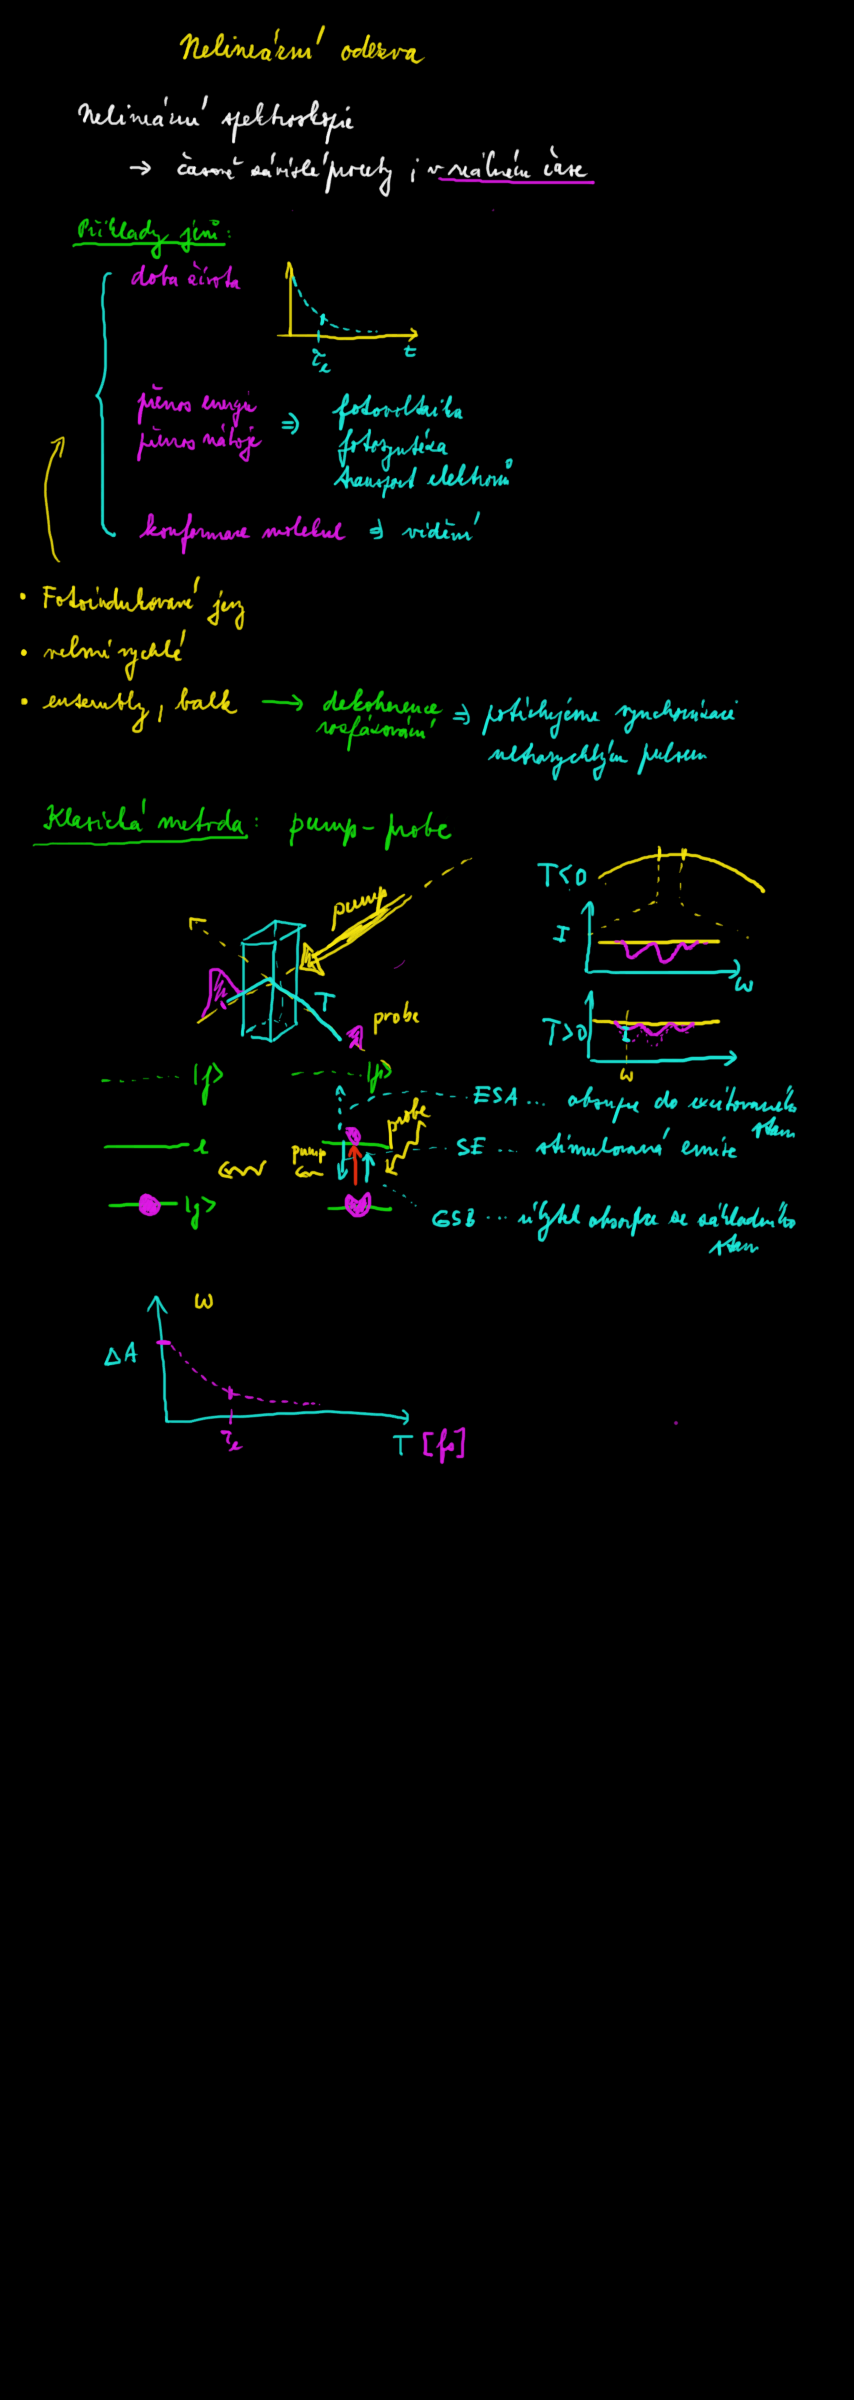 Nelineární odezva
Nelineární spektroskopie
→ časově závislé procesy i v reálném čase
Příklady jevů:
doba života
τe
t
přenos energie
přenos náboje
⇒
fotovoltaika
fotosyntéza
transport elektronů
konformace molekul ⇒ vidění
• Fotoindukované jevy
• velmi rychlé
• ensembly, balk → dekoherence
rozfázování
⇒ potřebujeme synchronizaci
ultrarychlým pulsem
Klasická metoda: pump-probe
T<0
pump
I
ω
T
probe
T>0
ω
|f>
|f>
ESA ... absorpce do excitovaného
stavu
probe
e
pump
SE ... stimulovaná emise
|g>
GSB ... úbytek absorpce ze základního
stavu
ω
ΔA
τe
T [fs]